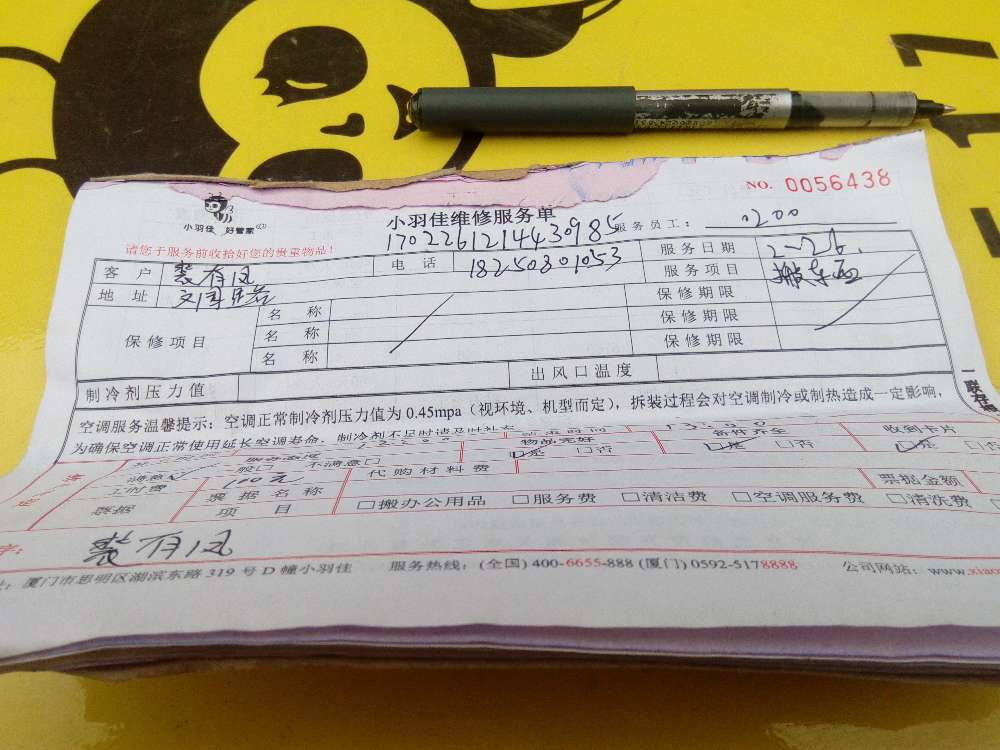 NO. 0056438
小羽佳 好管家
小羽佳维修服务单
服务员工： 0200
1702261214430985
请您于服务前收拾好您的贵重物品！
客户 裴有凤 电话 18250801053 服务日期 2-26.
地址 服务项目
保修项目 名称 保修期限
名称 保修期限
名称 保修期限
制冷剂压力值 出风口温度
空调服务温馨提示：空调正常制冷剂压力值为0.45mpa（视环境、机型而定），拆装过程会对空调制冷或制热造成一定影响，
为确保空调正常使用延长空调寿命，制冷剂不足时请及时补充
物品完好 备件齐全 收到卡片
□是 □否 □是 □否 □是
满意□ 一般□ 不满意□ 代购材料费
工时费 100元
票据 票据名称 票据金额
项目 □搬办公用品 □服务费 □清洁费 □空调服务费 □清洗费
字： 裴有凤
厦门市思明区湖滨东路319号D幢小羽佳 服务热线：(全国) 400-6655-888 (厦门) 0592-5178888 公司网站：www.xiao